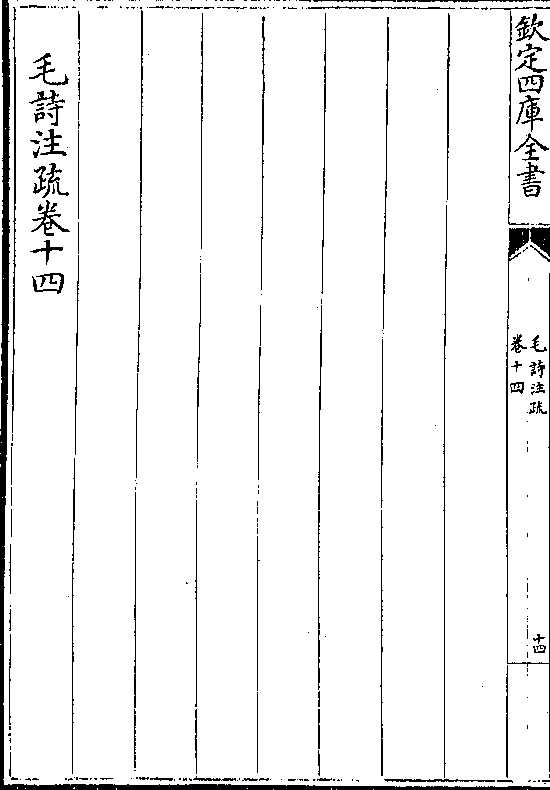 欽定四庫全書
毛詩注疏
卷十四
十四
毛詩注疏卷十四